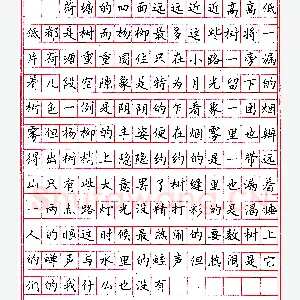 荷塘的四面远远近近高高低
低都是树而杨柳最多这些树将一
片荷塘重重围住只在小路一旁漏
着几段空隙象是特为月光留下的
树色一例是阴阴的乍看象一团烟
雾但杨柳的丰姿便在烟雾里也辨
得出树梢上隐隐约约的是一带远
山只有些大意罢了树缝里也漏着
一两点路灯光没精打彩的是渴睡
人的眼这时候最热闹的要数树上
的蝉声与水里的蛙声但热闹是它
们的我什么也没有